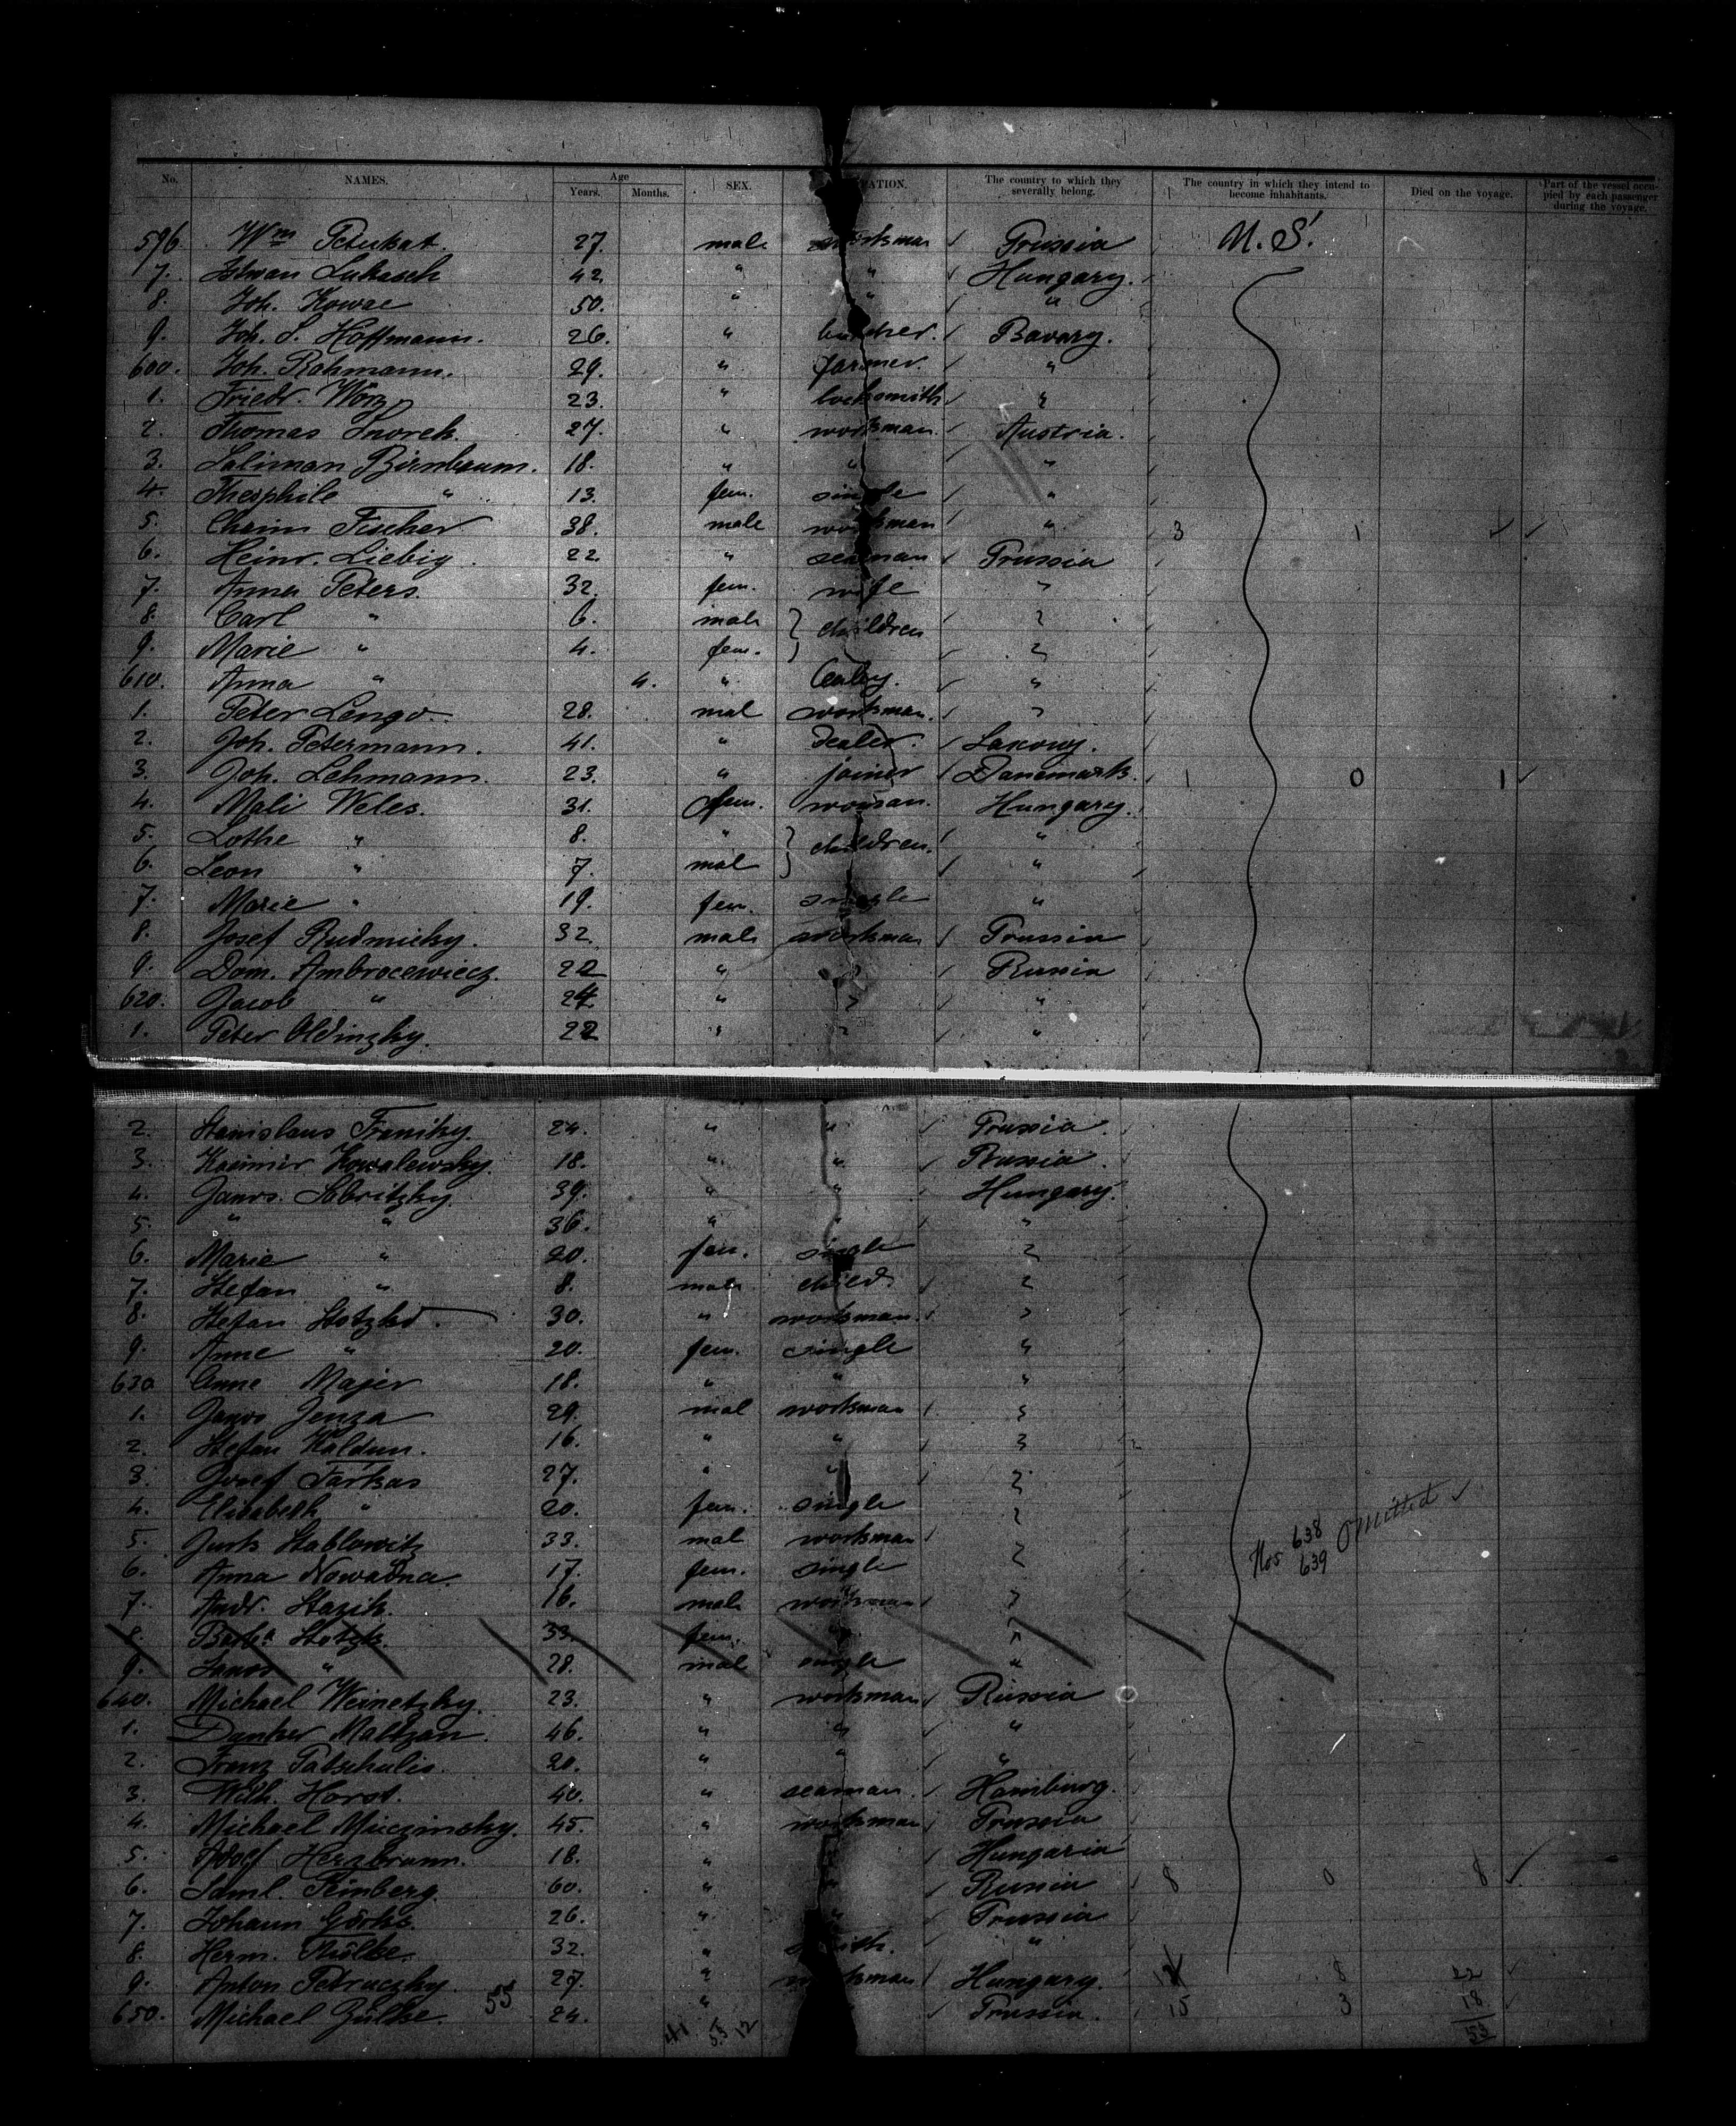 No. NAMES. Age Years. Months. SEX. The country to which they severally belong. The country in which they intend to become inhabitants. Died on the voyage. Part of the vessel occupied by each passenger during the voyage.
596. Wm Petukat. 27. male workman Prussia U. S.
7. Istwan Lukasch 42. " " Hungary.
8. Joh. Kowac 50. " " "
9. Joh. S. Hoffmann. 26. " butcher. Bavary.
600. Joh. Rahmann. 29. " farmer. "
1. Friedr. Wörz 23. " locksmith "
2. Thomas Snorek. 27. " workman. Austria.
3. Saliman Birnbaum. 18. " " "
4. Theophile " 13. fem. single "
5. Chaim Fischer 38. male workman " 3 1
6. Heinr. Liebig 22. " seaman Prussia
7. Anna Peters. 32. fem. wife "
8. Carl " 6. male } children "
9. Marie " 4. fem. "
610. Anna " 4. " baby. "
1. Peter Lengo. 28. mal workman. "
2. Joh. Petermann. 41. " dealer. Saxony.
3. Joh. Lehmann. 23. " joiner Danemark. 1 0 1
4. Mali Weles. 31. fem. woman. Hungary.
5. Lothe " 8. " } children. "
6. Leon " 7. mal "
7. Marie " 19. fem. single "
8. Josef Rudmicky. 32. male workman Prussia
9. Dom. Ambrocewiecz. 22 " " Russia
620. Jacob " 24 " " "
1. Peter Oldinzky. 22 " " "
2. Stanislaus Franzky. 24. " " Prussia.
3. Kasimir Kowalewsky. 18. " " Russia.
4. Janos. Sobritzky. 39. " " Hungary.
5. " " 36. " " "
6. Marie " 20. fem. single "
7. Stefan " 8. male child. "
8. Stefan Stotzko. 30. " workman. "
9. Anne " 20. fem. single "
630 Anne Majer 18. " " "
1. Janos Jenza 29. mal workman "
2. Stefan Kaldun. 16. " " "
3. Josef Farkas 27. " " "
4. Elisabeth " 20. fem. single "
5. Jurk Stablowitz 33. mal workman "
6. Anna Nowadna. 17. fem. single " Nos 638 639 omitted
7. Andr. Stazik. 16. male workman "
8. Barb.a Stotzk. 33. fem. " "
9. Janos " 28. mal single "
640. Michael Weinetzky. 23. " workman Russia
1. Danker Maltzan. 46. " " "
2. Franz Patschulis. 20. " " "
3. Wilh. Horst. 40. " seaman. Hamburg.
4. Michael Mieczinsky. 45. " workman Prussia
5. Adolf Herzbrunn. 18. " Hungaria
6. Saml. Steinberg. 60. " " Russia 8 0 8
7. Johann Görke. 26. " " Prussia
8. Herm. Mölke. 32. " smith. "
9. Anton Petruczky. 27. " workman Hungary. 8 22
650. Michael Gülke. 55 24. " Prussia. 15 3 18
41 55 12 53